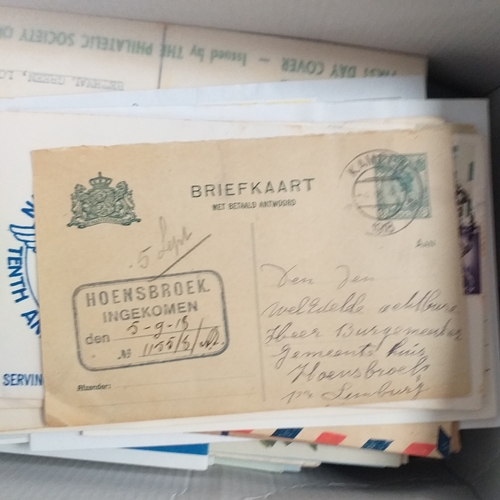 FIRST DAY COVER — Issued by THE PHILATELIC SOCIETY
TENTH
SERVIN
BRIEFKAART
MET BETAALD ANTWOORD
5 Sept
HOENSBROEK.
INGEKOMEN
den 5-9-18
№ 1155/5/
Afzender:
Aan
Den
weledelachtbare
Heer Burgemeester
Gemeente huis
Hoensbroek
Limburg